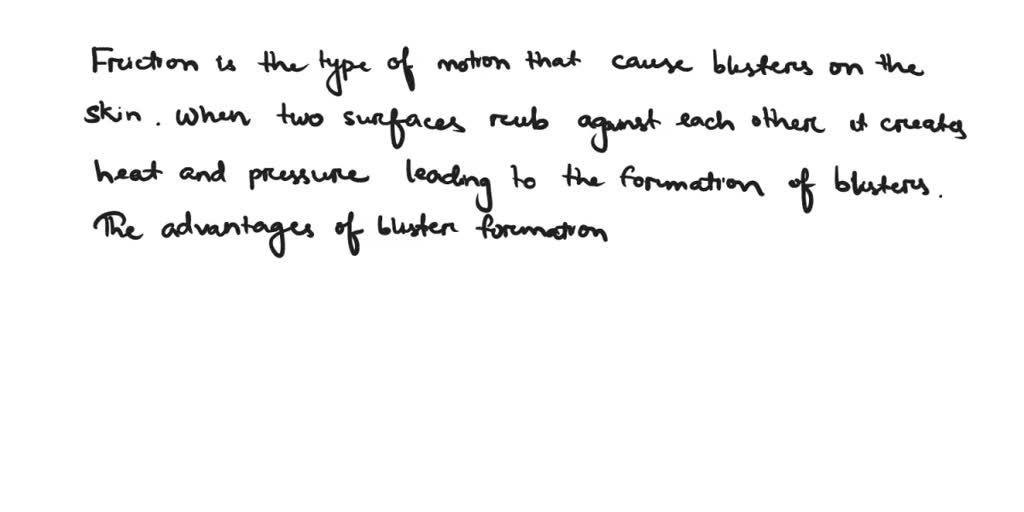 Friction is the type of motion that cause blisters on the
skin. When two surfaces rub against each other it creates
heat and pressure leading to the formation of blisters.
The advantages of blister formation